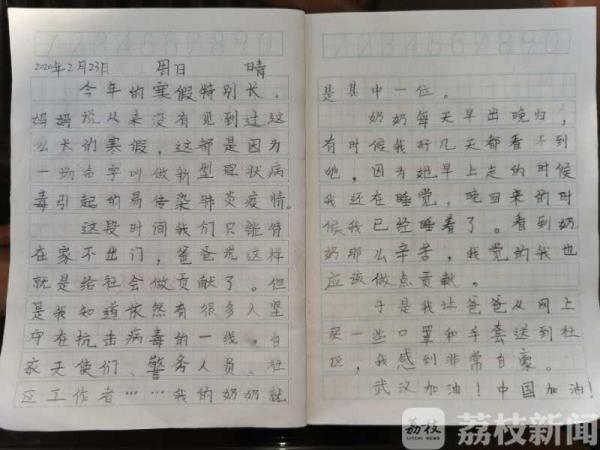 2020年2月23日 周日 晴
今年的寒假特别长，
妈妈说从来没有见到过这
么长的寒假，这都是因为
一场名字叫做新型冠状病
毒引起的易传染肺炎疫情。
这段时间我们只能待
在家不出门，爸爸说这样
就是给社会做贡献了。但
是我知道依然有很多人坚
守在抗击病毒的一线，白
衣天使们、警务人员、社
区工作者……我的奶奶就
是其中一位。
奶奶每天早出晚归，
有时候我好几天都看不到
她，因为她早上走的时候
我还在睡觉，晚回来的时
候我已经睡着了。看到奶
奶那么辛苦，我觉的我也
应该做点贡献。
于是我让爸爸从网上
买一些口罩和手套送到社
区，我感到非常自豪。
武汉加油！中国加油！
荔枝
LITCHI NEWS
荔枝新闻